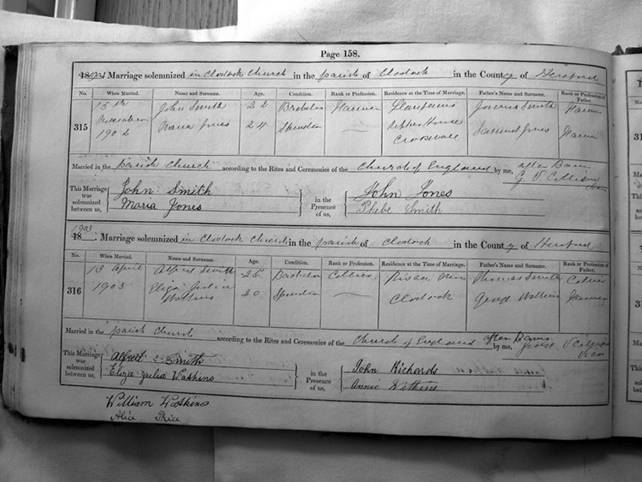 Page 158.
Marriage solemnized in Clodock Church in the parish of Clodock in the County of Hereford
No. When Married. Name and Surname. Age. Condition. Rank or Profession. Residence at the Time of Marriage. Father's Name and Surname. Rank or Profession of Father.
315
John Smith 22 Bachelor
Maria Jones 24 Spinster
Married in the parish church according to the Rites and Ceremonies of the Church of England after Banns by me,
This Marriage was solemnized between us,
John Smith
Maria Jones
in the Presence of us,
John Jones
Phebe Smith
1903
Marriage solemnized in Clodock Church in the parish of Clodock in the County of Hereford
No. When Married. Name and Surname. Age. Condition. Rank or Profession. Residence at the Time of Marriage. Father's Name and Surname. Rank or Profession of Father.
316
13 April 1903
Alfred Smith 26 Bachelor Collier Risca Thomas Smith Collier
Eliza Julia Watkins 20 Spinster Clodock Watkins
Married in the parish church according to the Rites and Ceremonies of the Church of England after Banns by me,
This Marriage was solemnized between us,
Alfred Smith
Eliza Julia Watkins
in the Presence of us,
John Richards
Annie Watkins
William Watkins
Alice Price